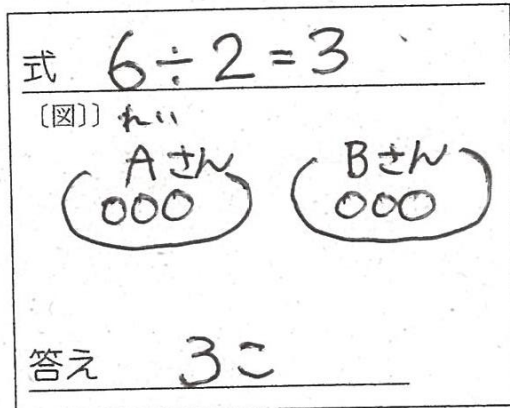 式 6÷2=3
〔図〕] れい
Aさん Bさん
答え 3こ